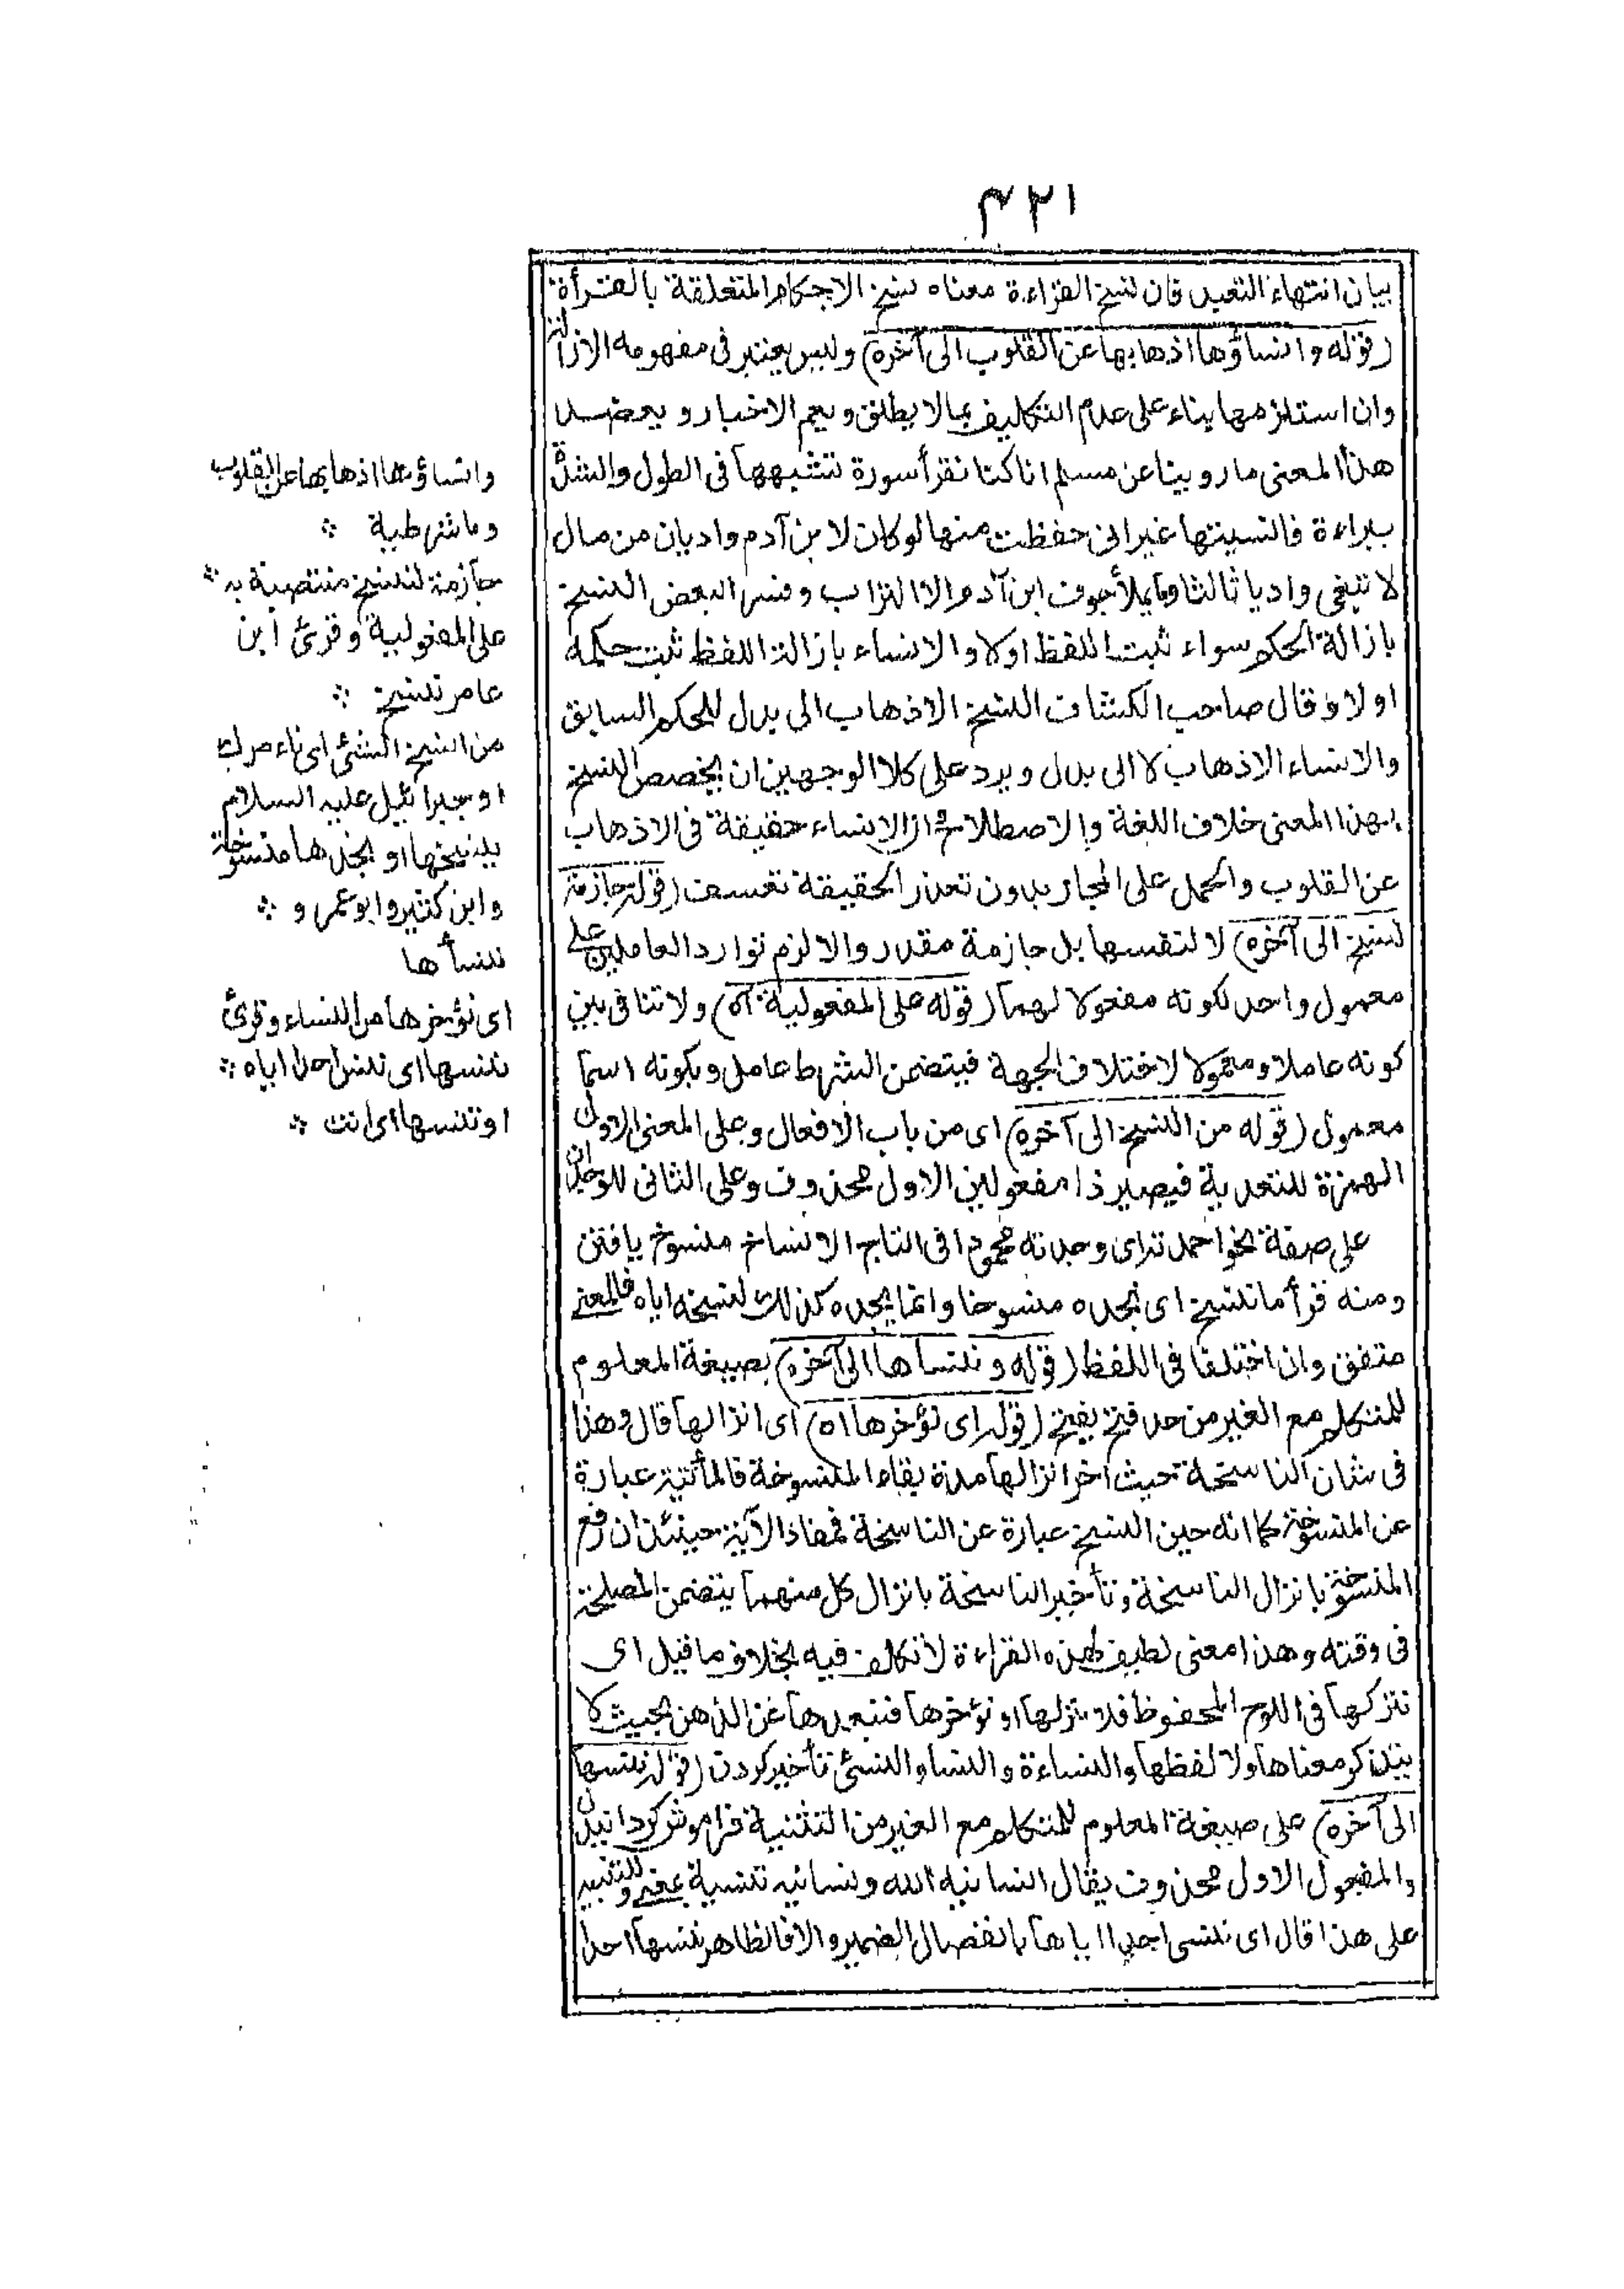 ٤٢١
بيان انتهاء التعبد فان نسخ القراءة معناه نسخ الاحكام المتعلقة بالقرأة
(قوله وانساؤها اذهابها عن القلوب الى آخره) وليس يعتبر فى مفهومه الازالة
وان استلزمها بناء على عدم التكليف بما لا يطاق ويعم الاخبار ويعضد
هذا المعنى ما روينا عن مسلم انا كنا نقرأ سورة نشبهها فى الطول والشدة
ببراءة فانسيتها غير انى حفظت منها لو كان لابن آدم واديان من مال
لا تبغى واديا ثالثا وما يملأ جوف ابن آدم الا التراب وفسر البعض النسخ
بازالة الحكم سواء ثبت اللفظ اولا والانساء بازالة اللفظ ثبت حكمه
اولا وقال صاحب الكشاف النسخ الاذهاب الى بدل للحكم السابق
والانساء الاذهاب لا الى بدل ويرد على كلا الوجهين ان يخصص النسخ
بهذا المعنى خلاف اللغة والاصطلاح وان الانساء حقيقة فى الاذهاب
عن القلوب والحمل على المجاز بدون تعذر الحقيقة تعسف (قوله جازمة
لننسخ الى آخره) لا لنفسها بل جازمة مقدر والا لزم توارد العاملين على
معمول واحد لكونه مفعولا لهما (قوله على المفعولية آه) ولا تنافى بين
كونه عاملا ومعمولا لاختلاف الجهة فبتضمن الشرط عامل وبكونه اسما
معمول (قوله من النسخ الى آخره) اى من باب الافعال وعلى المعنى الاول
الهمزة للتعدية فيصير ذا مفعولين الاول محذوف وعلى الثانى للوجدان
على صفة نحو احمدته اى وجدته محمودا فى التاج الانساخ منسوخ يافتن
ومنه قرأ ما ننسخ اى نجده منسوخا وانما يجده كذلك لنسخه اياه فالمعنى
متفق وان اختلفا فى اللفظ (قوله وننسأها الى آخره) بصيغة المعلوم
للمتكلم مع الغير من حد فتح يفتح (قوله اى نؤخرها اه) اى انزالها قال وهذا
فى شان الناسخة حيث اخر انزالها مدة بقاء المنسوخة فالمأتية عبارة
عن المنسوخة كما انه حين النسخ عبارة عن الناسخة فمفاد الآية حينئذ ان رفع
المنسوخة بانزال الناسخة وتأخير الناسخة بانزال كل منهما يتضمن المصلحة
فى وقته وهذا معنى لطيف لهذه القراءة لا تكلف فيه بخلاف ما قيل اى
نتركها فى اللوح المحفوظ فلا ننزلها او نؤخرها فنبعدها عن الذهن بحيث لا
يتذكر معناها ولا لفظها والنساءة والنسا والنسئ تأخير كردن (قوله ننسها
الى آخره) على صيغة المعلوم للمتكلم مع الغير من التنسية فراموش كردانيدن
والمفعول الاول محذوف يقال انسانيه الله ونسانيه تنسية بمعنى وللتنبيه
على هذا قال اى ننسى احدا اياها بانفصال الضمير والا فالظاهر ننسها احدا
وانساؤها اذهابها عن القلوب
وما شرطية
جازمة لننسخ منتصبة به
على المفعولية وقرئ ابن
عامر ننسخ
من انسخ الشئ اى ناءمرك
او جبرائيل عليه السلام
بنسخها او نجدها منسوخة
وابن كثير وابو عمرو
ننسأها
اى نؤخرها من النساء وقرئ
ننسها اى ننس احدا اياه
او تنسها اى انت